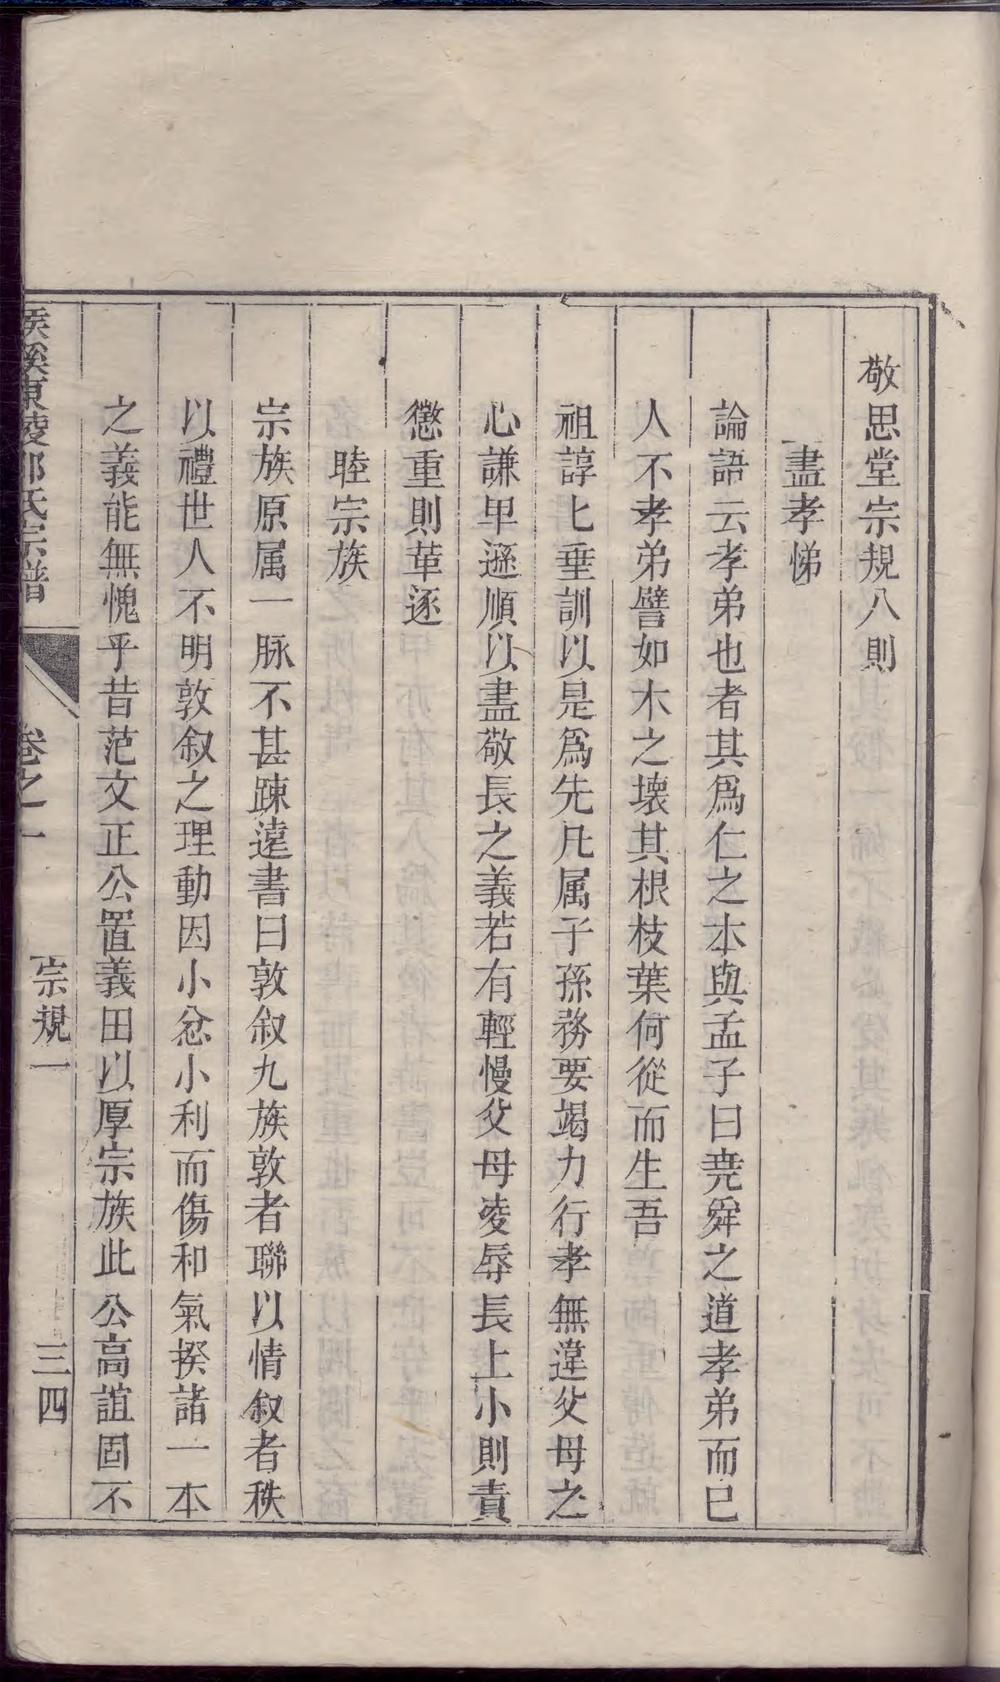 敬思堂宗規八則
盡孝悌
論語云孝弟也者其爲仁之本與孟子曰尭舜之道孝弟而已
人不孝弟譬如木之壊其根枝葉何從而生吾
祖諄匕垂訓以是爲先凡属子孫務要竭力行孝無違父母之
心謙卑遜順以盡敬長之義若有輕慢父母凌辱長上小則責
懲重則革逐
睦宗族
宗族原属一脉不甚踈遠書曰敦叙九族敦者聯以情叙者秩
以禮世人不明敦叙之理動因小忿小利而傷和氣揆諸一本
之義能無愧乎昔范文正公置義田以厚宗族此公高誼固不
溪東陵 氏宗譜 卷之一 宗規一 三四